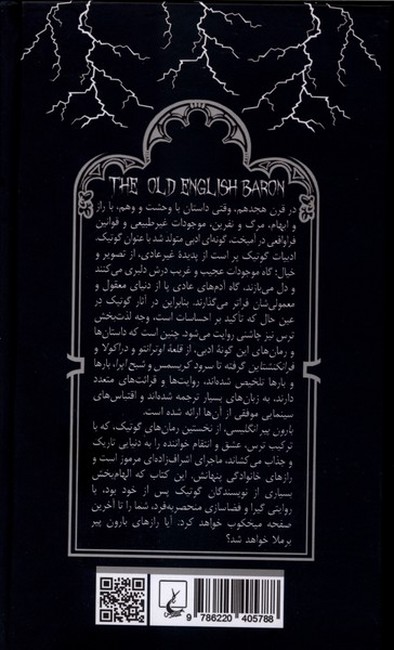 THE OLD ENGLISH BARON
در قرن هجدهم، وقتی داستان با وحشت و وهم، با راز
و ابهام، مرگ و نفرین، موجودات غیرطبیعی و قوانین
فراواقعی در آمیخت، گونه‌ای ادبی متولد شد با عنوان گوتیک.
ادبیات گوتیک پر است از پدیدهٔ غیرعادی، از تصویر و
خیال؛ گاه موجودات عجیب و غریب درش دلبری می‌کنند
و دل می‌بازند، گاه آدم‌های عادی پا از دنیای معقول و
معمولی‌شان فراتر می‌گذارند. بنابراین در آثار گوتیک در
عین حال که تأکید بر احساسات است، وجه لذت‌بخش
ترس نیز چاشنی روایت می‌شود. چنین است که داستان‌ها
و رمان‌های این گونهٔ ادبی، از قلعهٔ اوترانتو و دراکولا و
فرانکنشتاین گرفته تا سرود کریسمس و شبح اپرا، بارها
و بارها تلخیص شده‌اند، روایت‌ها و قرائت‌های متعدد
دارند، به زبان‌های بسیار ترجمه شده‌اند و اقتباس‌های
سینمایی موفقی از آن‌ها ارائه شده است.
بارون پیر انگلیسی، از نخستین رمان‌های گوتیک، که با
ترکیب ترس، عشق و انتقام خواننده را به دنیایی تاریک
و جذاب می‌کشاند، ماجرای اشراف‌زاده‌ای مرموز است و
رازهای خانوادگی پنهانش. این کتاب که الهام‌بخش
بسیاری از نویسندگان گوتیک پس از خود بود، با
روایتی گیرا و فضاسازی منحصربه‌فرد، شما را تا آخرین
صفحه میخکوب خواهد کرد. آیا رازهای بارون پیر
برملا خواهد شد؟
9 786220 405788